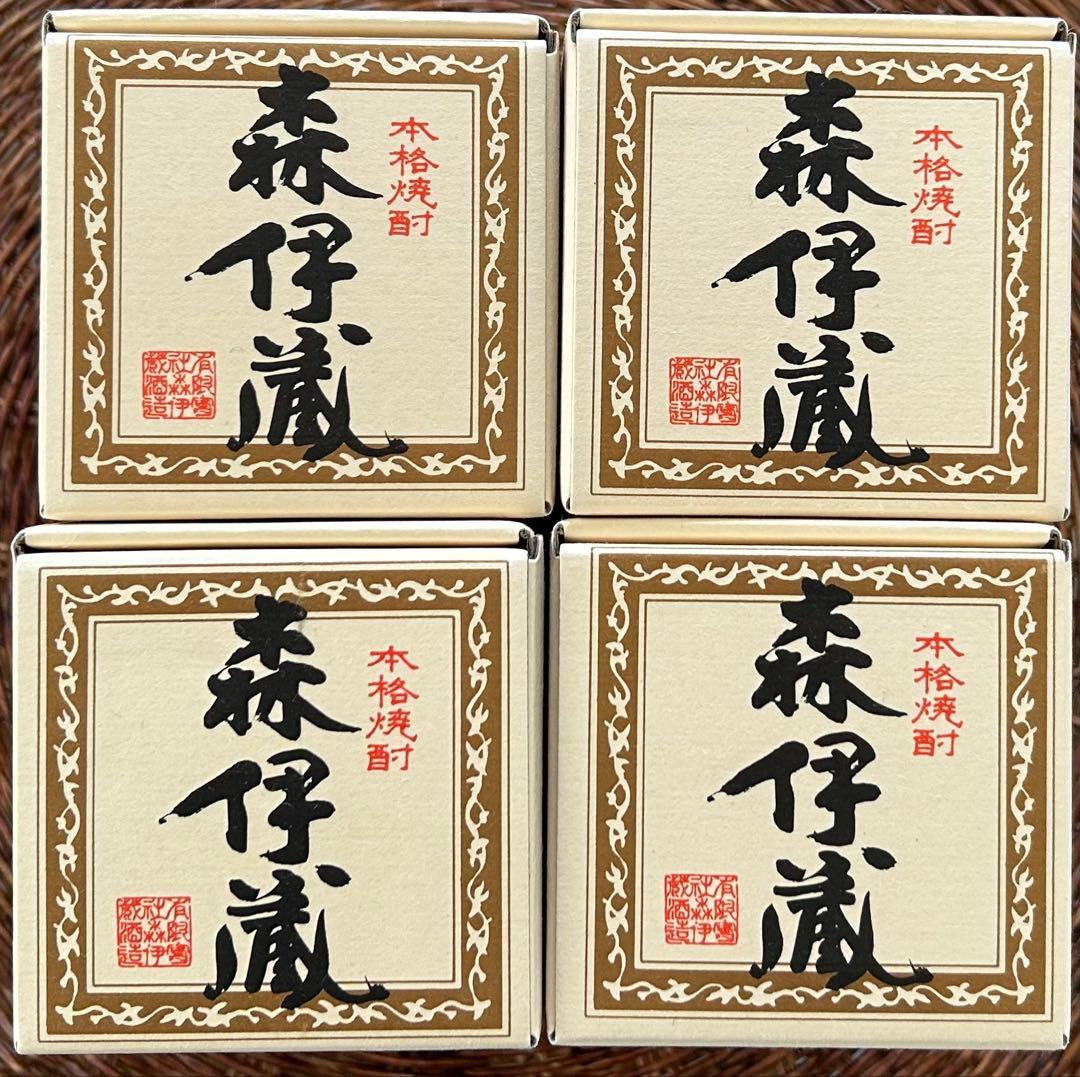 本格焼酎
森伊蔵
有限會
社森伊
藏酒造
本格焼酎
森伊蔵
有限會
社森伊
藏酒造
本格焼酎
森伊蔵
有限會
社森伊
藏酒造
本格焼酎
森伊蔵
有限會
社森伊
藏酒造